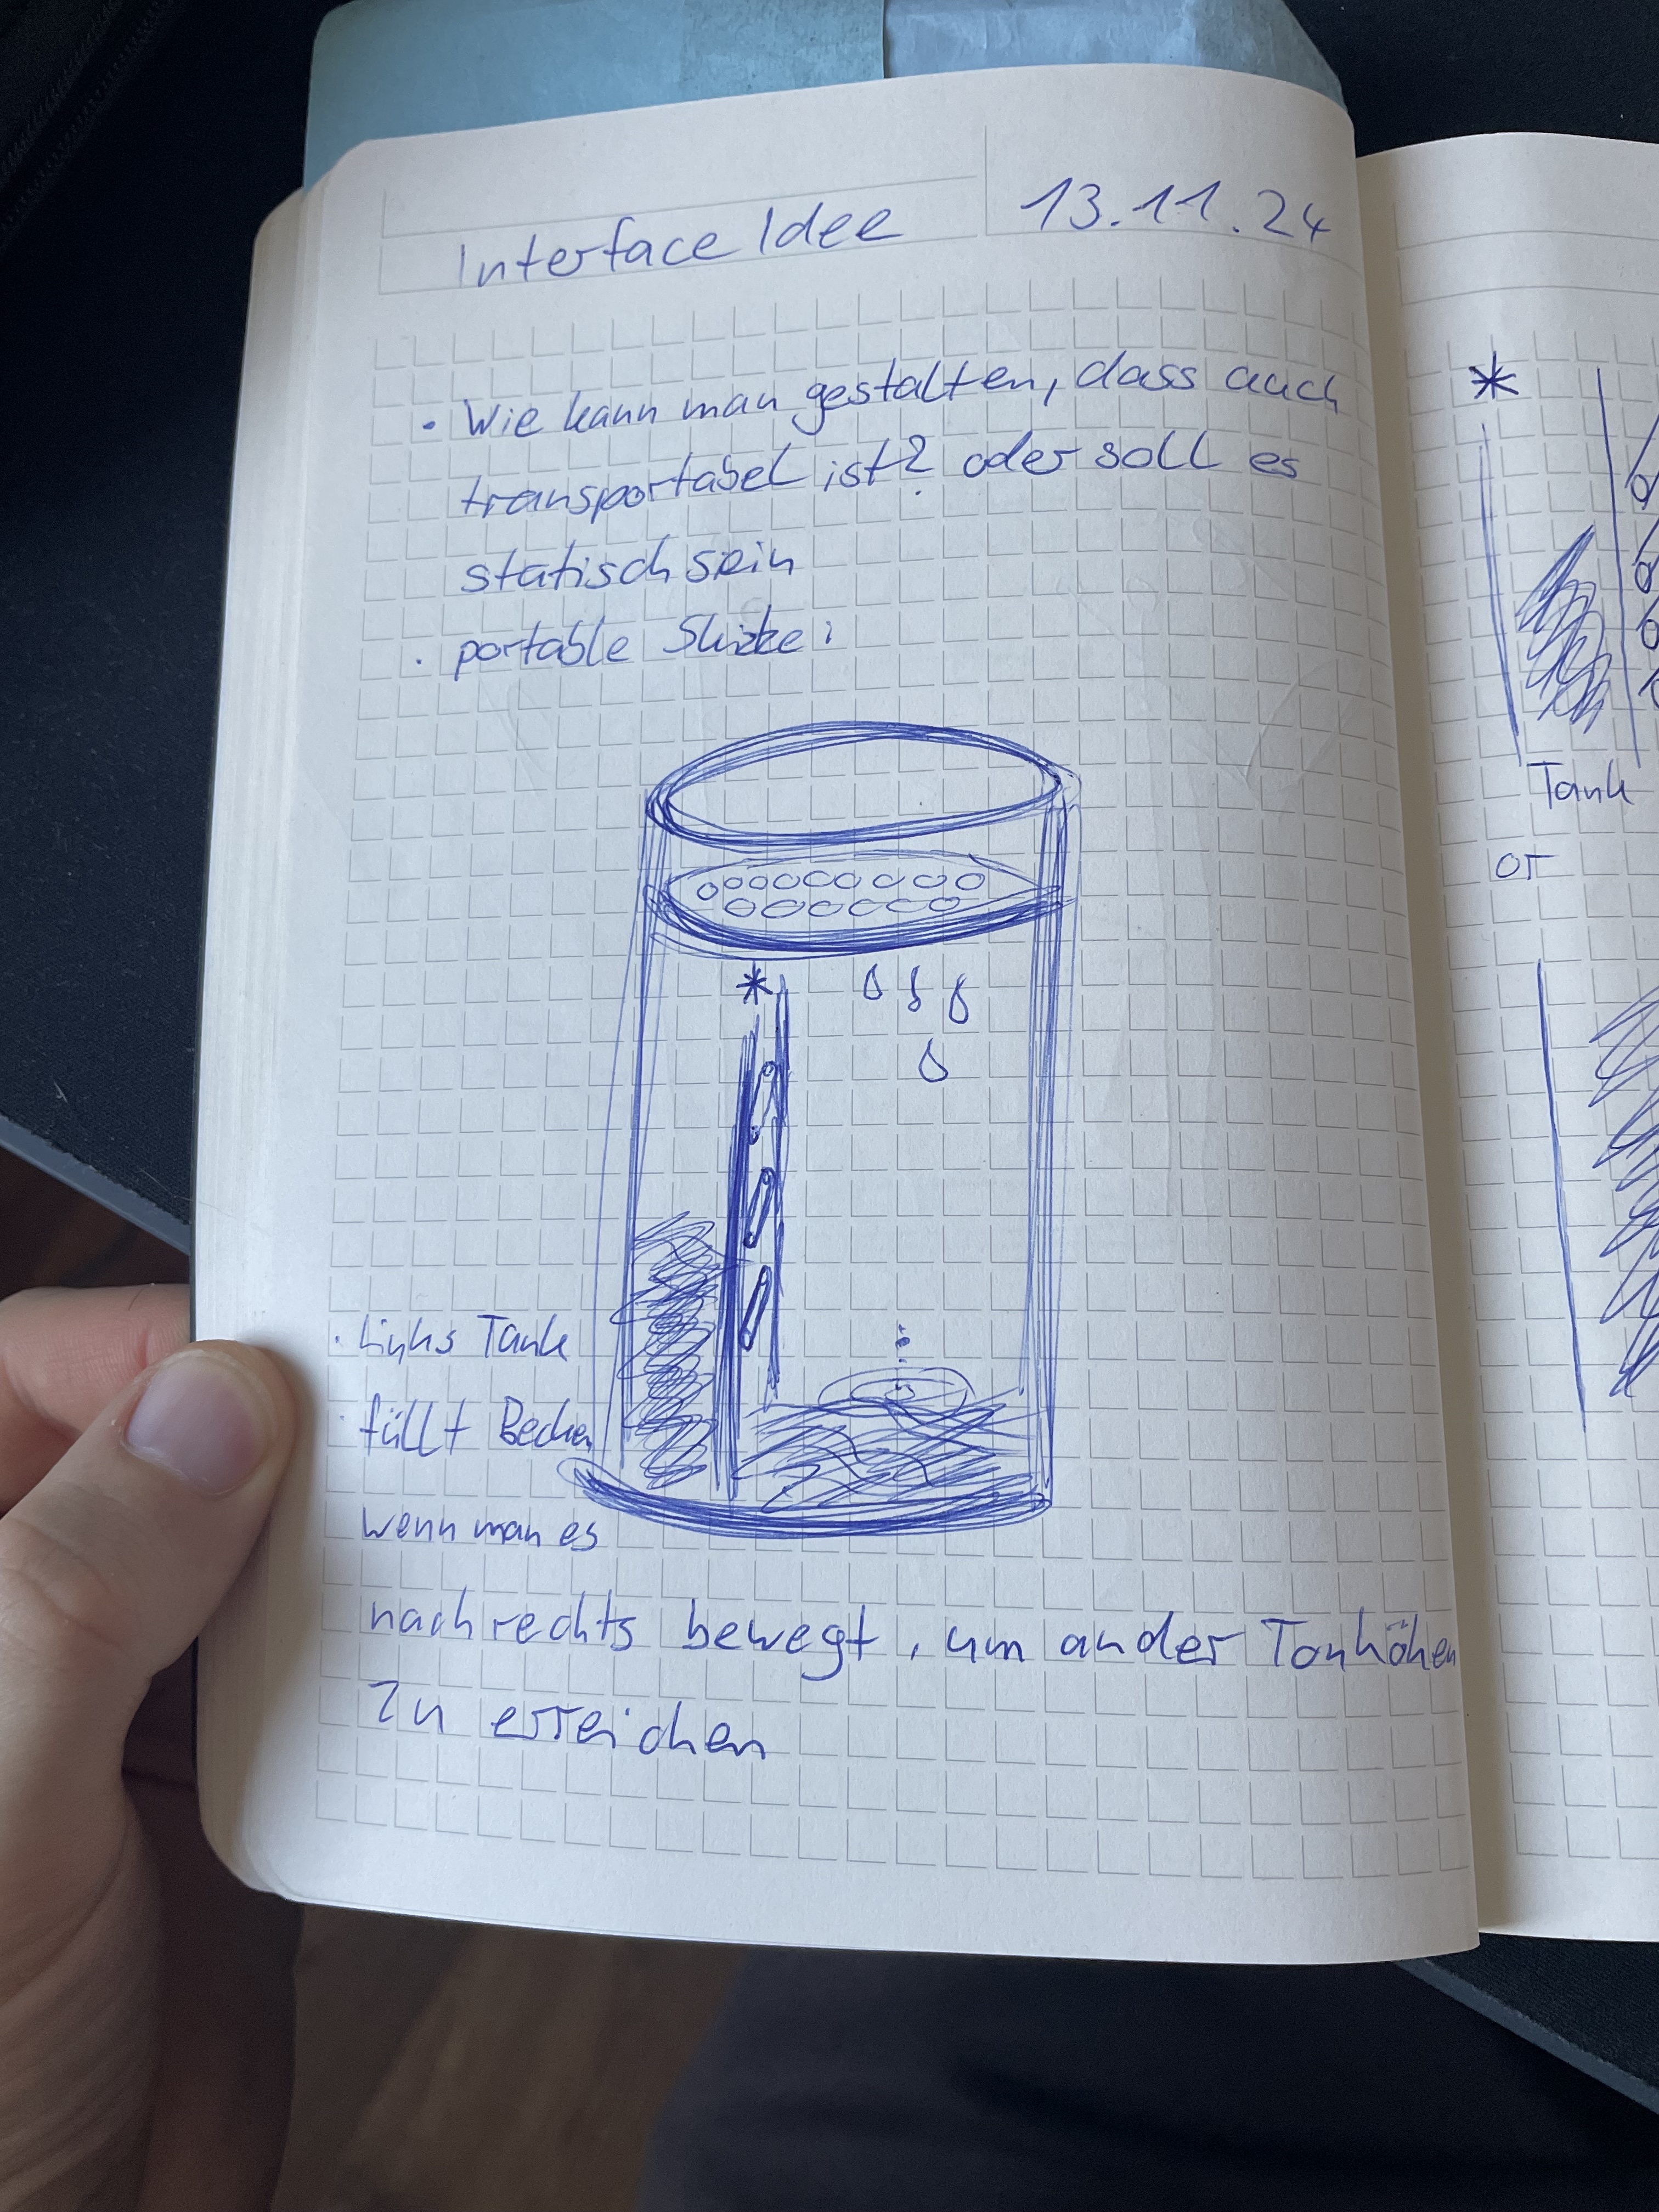 Interface Idee
13.11.24
• Wie kann man gestalten, dass auch
transportabel ist? oder soll es
statisch sein
• portable Skizze:
*
• Links Tank
füllt Becken
wenn man es
nach rechts bewegt, um ander Tonhöhen
zu erreichen
*
Tank
or